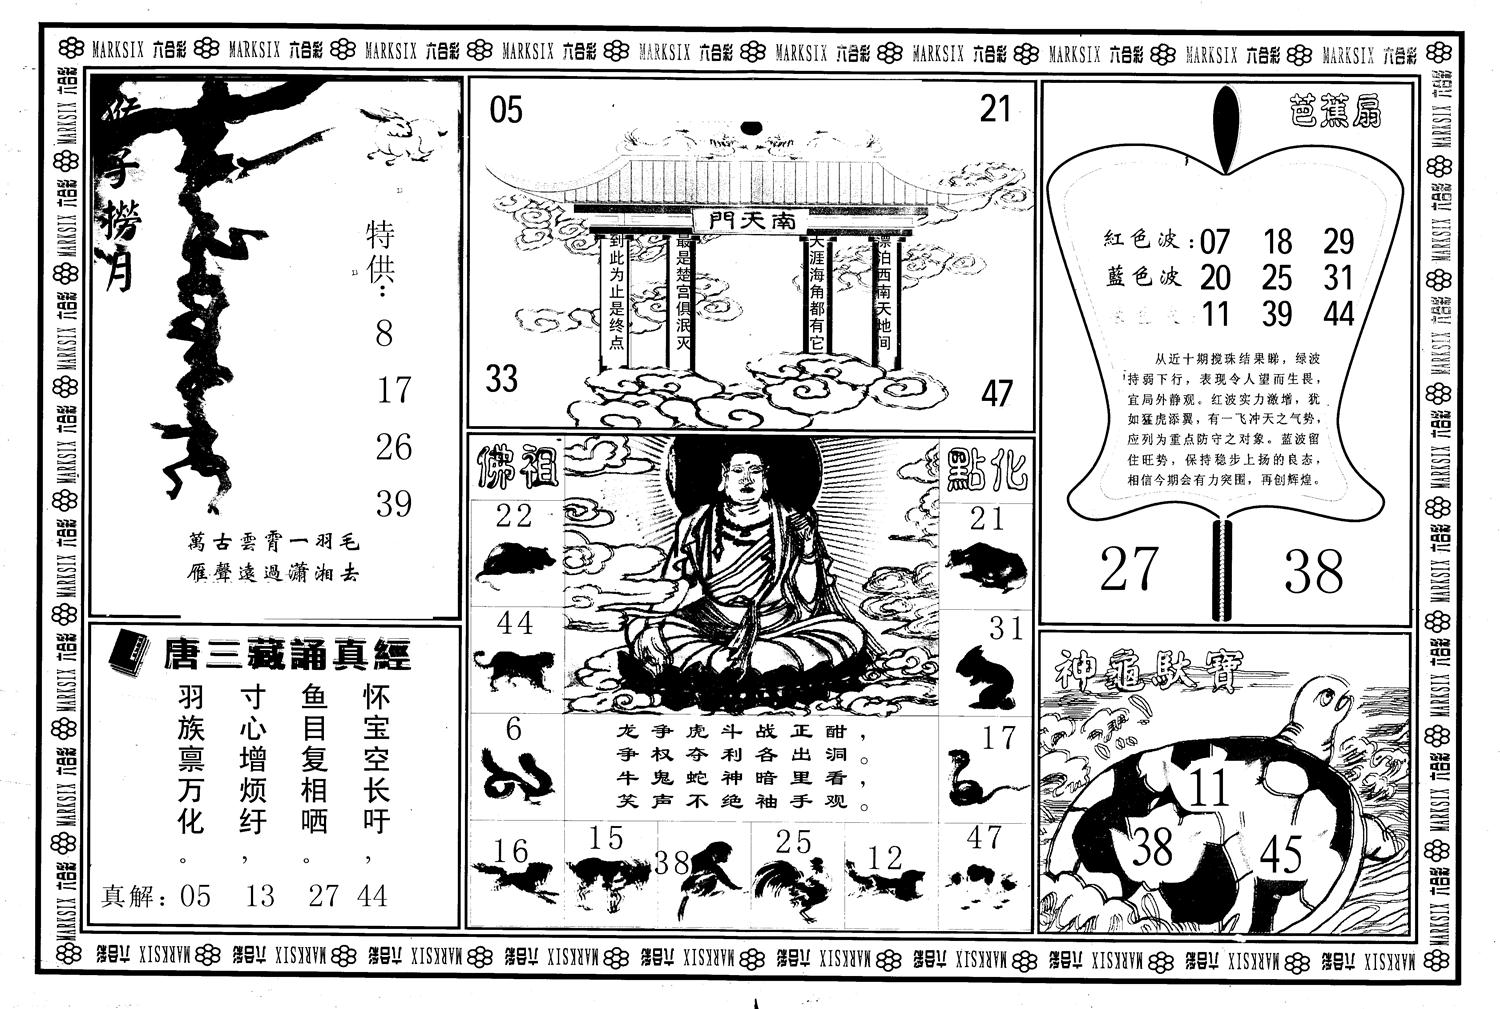 MARKSIX 六合彩 MARKSIX 六合彩 MARKSIX 六合彩 MARKSIX 六合彩 MARKSIX 六合彩 MARKSIX 六合彩 MARKSIX 六合彩 MARKSIX 六合彩 MARKSIX 六合彩 MARKSIX 六合彩
猴子撈月
特供：
8
17
26
39
萬古雲霄一羽毛
雁聲遠過瀟湘去
05
21
南天門
漂泊西南天地间
天涯海角都有它
最是楚宫俱泯灭
到此为止是终点
33
47
芭蕉扇
紅色波：07 18 29
藍色波 20 25 31
11 39 44
从近十期搅珠结果睇，绿波
持弱下行，表现令人望而生畏，
宜局外静观。红波实力激增，犹
如猛虎添翼，有一飞冲天之气势，
应列为重点防守之对象。蓝波留
住旺势，保持稳步上扬的良态，
相信今期会有力突围，再创辉煌。
27
38
佛祖
點化
22
21
44
31
6
17
龙争虎斗战正酣，
争权夺利各出洞。
牛鬼蛇神暗里看，
笑声不绝袖手观。
16
15
38
25
12
47
唐三藏誦真經
怀宝空长吁，
鱼目复相哂。
寸心增烦纡，
羽族禀万化。
真解：05 13 27 44
神龜馱寶
11
38
45
MARKSIX 六合彩 MARKSIX 六合彩 MARKSIX 六合彩 MARKSIX 六合彩 MARKSIX 六合彩 MARKSIX 六合彩 MARKSIX 六合彩 MARKSIX 六合彩 MARKSIX 六合彩 MARKSIX 六合彩